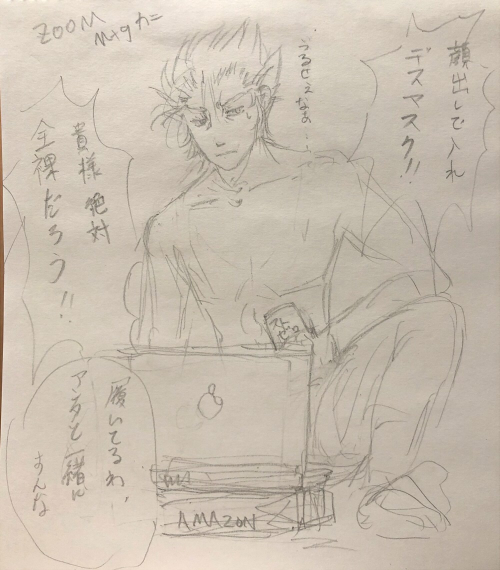 ZOOM
Night
顔出しで入れ
デスマスク!!
うるせえ
なぁ…
貴様 絶対
全裸だろう!!
ストゼロ
履いてるわ、
アンタと一緒に
すんな
AMAZON